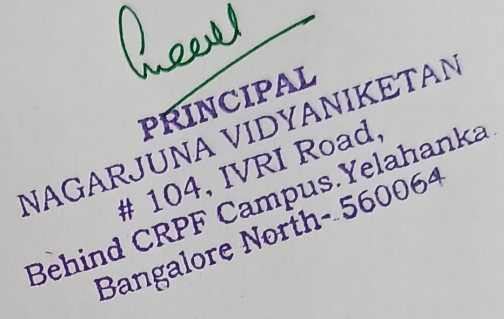 PRINCIPAL
NAGARJUNA VIDYANIKETAN
# 104, IVRI Road,
Behind CRPF Campus.Yelahanka.
Bangalore North-560064